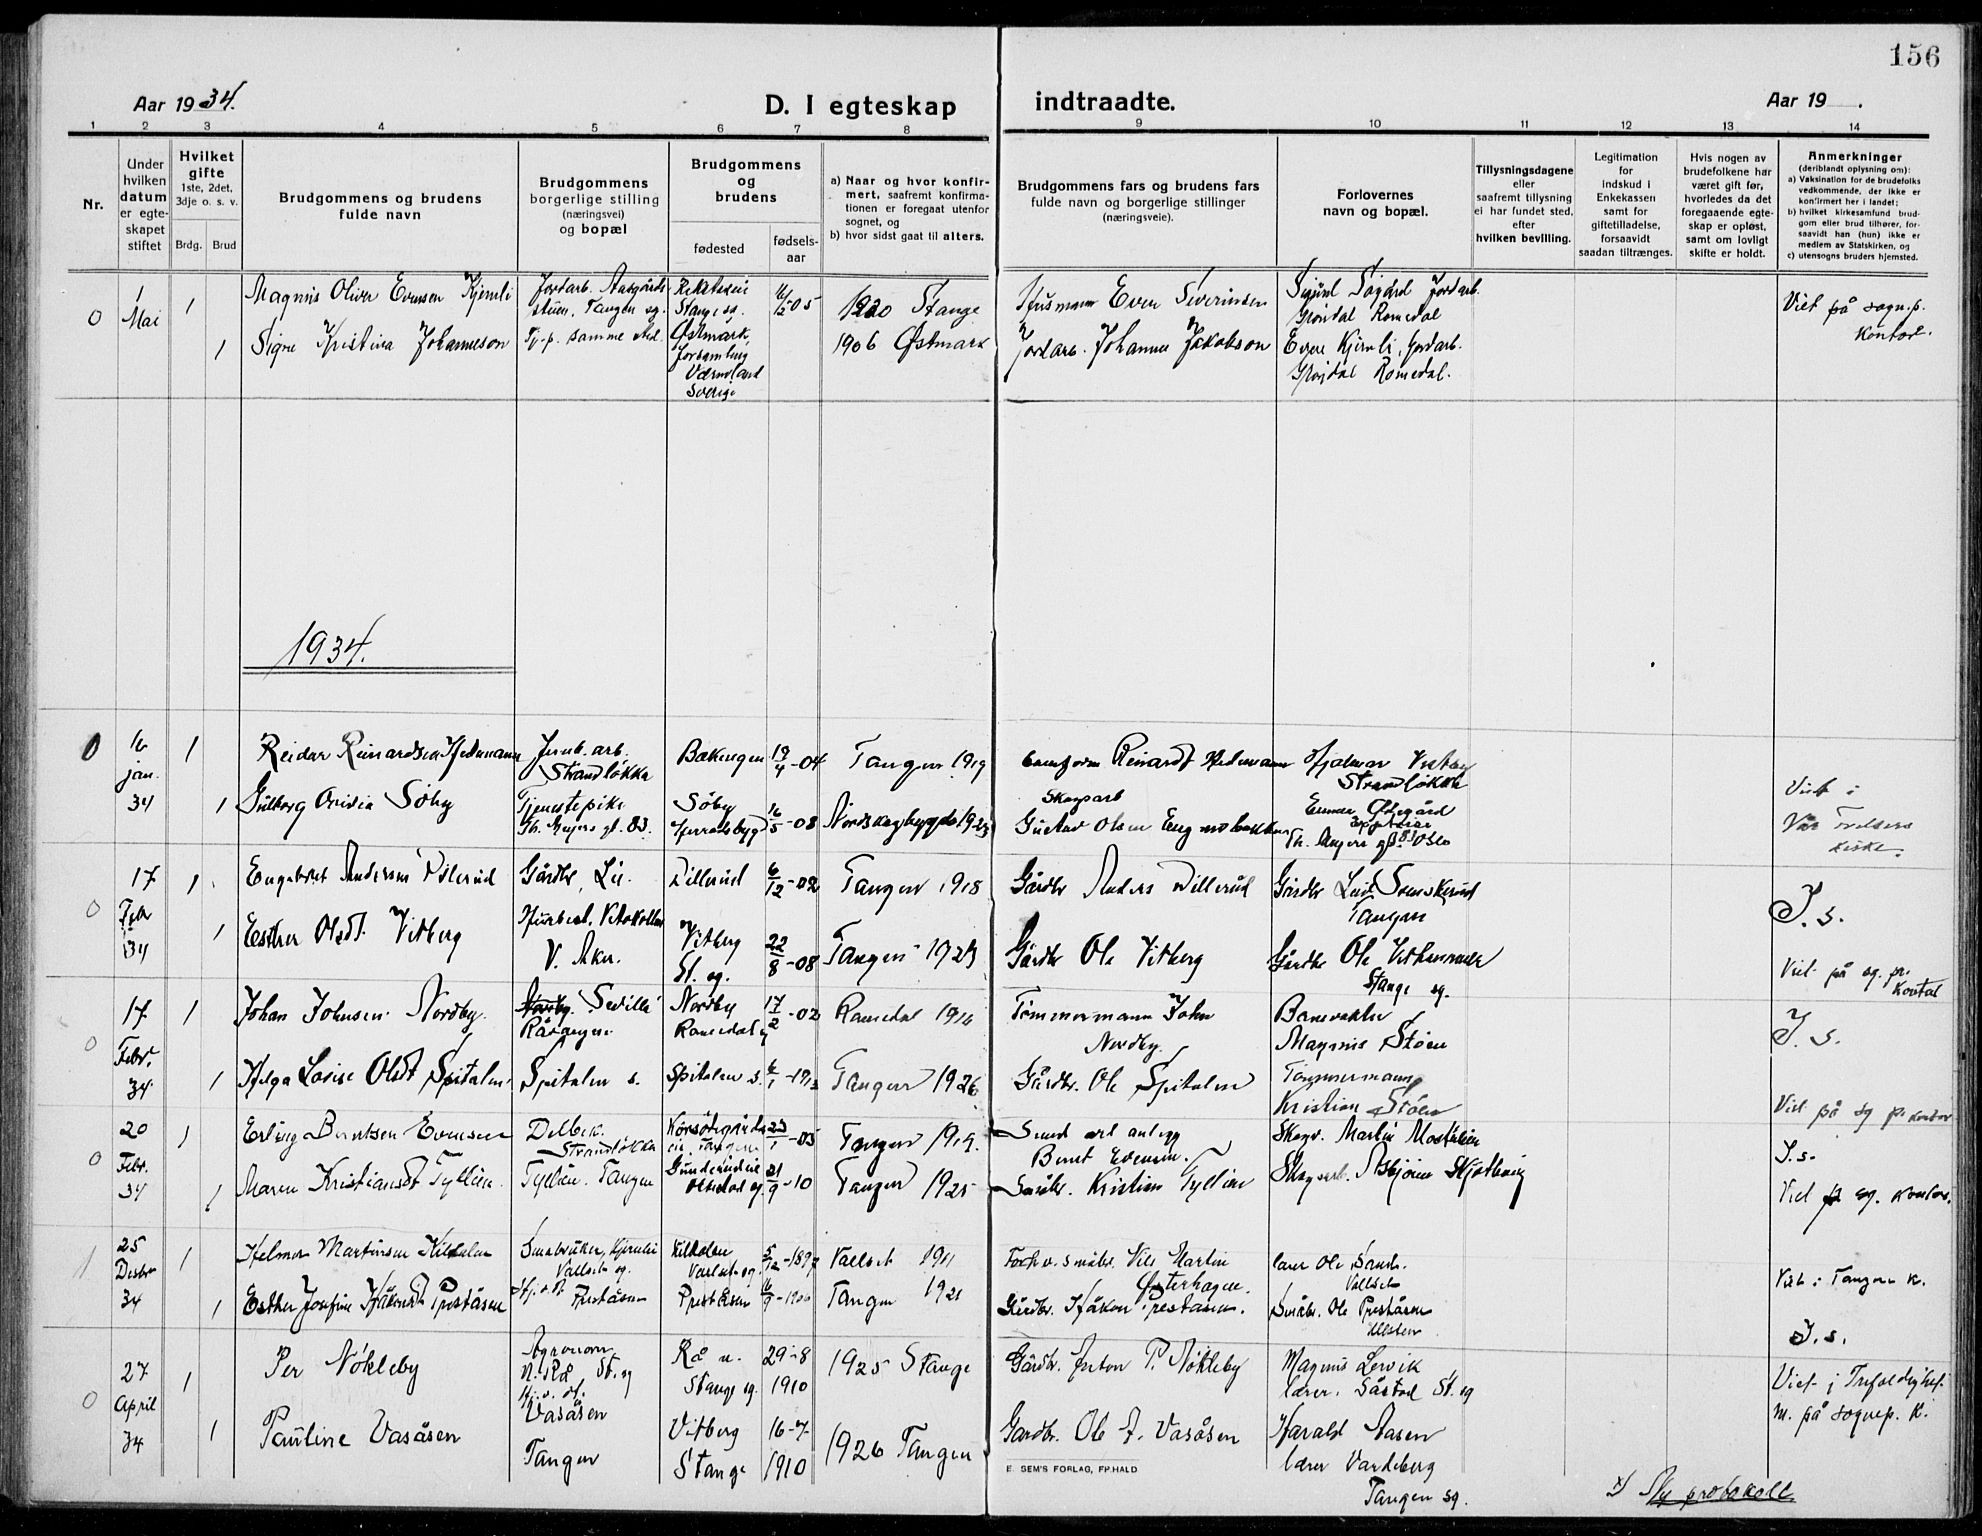 156
Aar 1934.
D. I egteskap indtraadte.
Aar 19 .
1 2 3 4 5 6 7 8 9 10 11 12 13 14
Nr.
Under
hvilken
datum
er egte-
skapet
stiftet
Hvilket
gifte
1ste, 2det,
3dje o. s. v.
Brdg. Brud
Brudgommens og brudens
fulde navn
Brudgommens
borgerlige stilling
(næringsvei)
og bopæl
Brudgommens
og
brudens
fødested
fødsels-
aar
a) Naar og hvor konfir-
mert, saafremt konfirma-
tionen er foregaat utenfor
sognet, og
b) hvor sidst gaat til alters.
Brudgommens fars og brudens fars
fulde navn og borgerlige stillinger
(næringsveie).
Forlovernes
navn og bopæl.
Tillysningsdagene
eller
saafremt tillysning
ei har fundet sted,
efter
hvilken bevilling.
Legitimation
for
indskud i
Enkekassen
samt for
giftetilladelse,
forsaavidt
saadan tiltrænges.
Hvis nogen av
brudefolkene har
været gift før,
hvorledes da det
foregaaende egte-
skap er opløst,
samt om lovligt
skifte er holdt.
Anmerkninger
(deriblandt oplysning om):
a) Vaksination for de brudefolks
vedkommende, der ikke er
konfirmert her i landet;
b) hvilket kirkesamfund brud-
gom eller brud tilhører, for-
saavidt han (hun) ikke er
medlem av Statskirken, og
c) utensogns bruders hjemsted.
0
1
Mai
1
Magnus Oliver Evensen Kjernli
Jordarb.
Tangen sg.
Stange sg.
6/12 05
1920 Stange
Husmann Even Severinsen
Sigurd Jordarb.
Grøndal Romedal
Viet på sogn.p.
kontor.
1
Signe Kristina Johanneson
samme sted.
Østmark,
forsamling
Värmland
Sverige
1906 Østmark
Jordarb. Johannes Jakobson
Even Kjernli, Jordarb.
Grøndal Romedal.
1934.
0
16
jan.
34
1
Reidar Reinardsen Hedemann
Jernb. arb.
Strandløkka
Bækengen
19/4 - 04
Tangen 1919
Reinardt Hedemann
Hjalmar Vestby
Strandløkka
1
Gudborg Søby
Tjenestepike
Th. Meyers gt. 83.
Søby
16/5 - 08
1923
Skogsarb
Gustav Olsen
Østegård
Th. Meyers gt. 83 Oslo
Viet i
Vår Frelsers
kirke.
0
17
Febr
34
1
Engebret Andersen Dillerud
Gårdbr, Lie.
Dillerud
6/12 - 02
Tangen 1918
Gårdbr Anders Dillerud
Gårdbr
Tangen
J. s.
1
Esther Olsdt. Vitberg
V. Aker.
Vitberg
St. sg.
22/8 - 08
Tangen 1923
Gårdbr Ole Vitberg
Gårdbr Ole
Stange sg.
Viet på sg. pr.
kontor
0
17
Febr.
34
1
Johan Johnsen Nordby.
Nordby
Romedal
17/2 - 02
Romedal 1916
Tømmermann John
Nordby.
Banevokter
Magnus Støen
J. s.
1
Helga Lovise Olsdt Spitalen.
Spitalen s.
Spitalen s.
6/1 - 1912
Tangen 1926
Gårdbr. Ole Spitalen
Tømmermann
Kristian Støen
Viet på sg pr. kontor
0
20
Febr.
34
1
Erling Berntsen Evensen
Strandløkka
23/1 - 05
Tangen 1919.
Smed
Bernt Evensen.
Skogv. Martin
J. s.
1
Maren Kristiansdt Tyllien.
Tyllien. Tangen
21/9 - 10
Tangen 1925
Småbr. Kristian Tyllien
Skogsarb. Asbjørn
Viet på sg. kontor.
1
25
Desbr
34
1
Helmer Martinsen Kildalen
Småbruker, Kjernlie
Vallset sg.
Kildalen
Vallset sg.
5/12 - 1897
Vallset 1911
Forh.v. småbr. Nils Martin
Østerhagen.
lærer Ole Sand.
Vallset
Viet i Tangen k.
1
Esther Josefine Håkonsdt Preståsen
Preståsen
Preståsen
6/9 - 1906
Tangen 1921
Gårdbr. Håkon Preståsen.
Småbr. Ole Preståsen
J. s.
0
27
April
34
1
Per Nøkleby
Agronom
N. Rå St. sg
Rå n.
Stange sg.
29-8
1910
1925 Stange
Gårdbr. Anton P. Nøkleby
Magnus Lervik
lærer. Såstad St. sg
Viet i Trefoldighet-
m. på sognep. k.
1
Pauline Vasåsen
Vasåsen
Tangen
Vitberg
Stange
16-7-
1910
1926 Tangen
Gårdbr. Ole A. Vasåsen
Harald Aasen
lærer Vardeberg
Tangen sg.
E. SEM'S FORLAG, FR.HALD
x) Ny protokoll